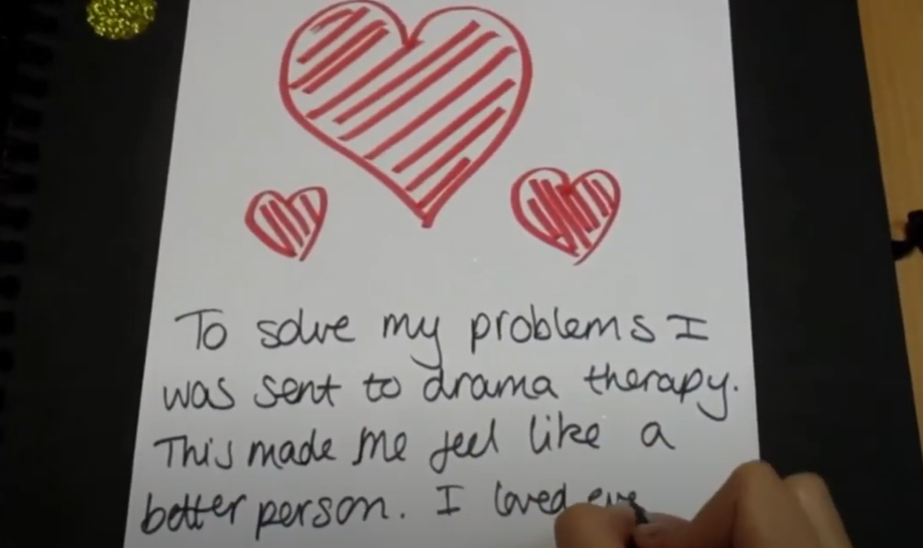 To solve my problems I
was sent to drama therapy.
This made me feel like a
better person. I loved eve